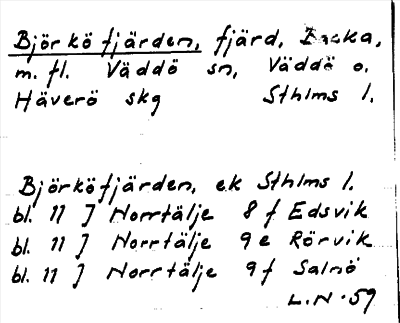 Björkö fjärden, fjärd, Backa,
m. fl. Väddö sn, Väddö o.
Häverö skg Sthlms l.
Björköfjärden, ek Sthlms l.
bl. 11 J Norrtälje 8 f Edsvik
bl. 11 J Norrtälje 9 e Rörvik
bl. 11 J Norrtälje 9 f Salnö
L.N. 59